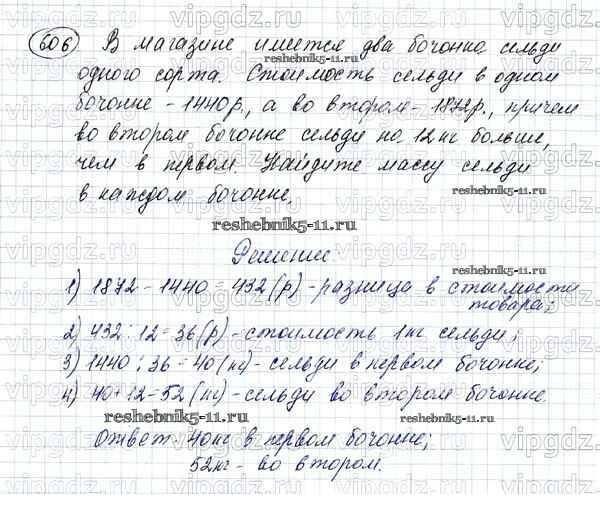 606 В магазине имеется два бочонка сельди
одного сорта. Стоимость сельди в одном
бочонке - 1440р., а во втором - 1872р., причем
во втором бочонке сельди на 12кг больше,
чем в первом. Найдите массу сельди
в каждом бочонке.
reshebnik5-11.ru
Решение:
1) 1872 - 1440 = 432 (р) - разница в стоимости
товара;
2) 432 : 12 = 36 (р) - стоимость 1кг сельди;
3) 1440 : 36 = 40 (кг) - сельди в первом бочонке;
4) 40 + 12 = 52 (кг) - сельди во втором бочонке.
reshebnik5-11.ru
Ответ: 40кг в первом бочонке;
52кг - во втором.
vipgdz.com